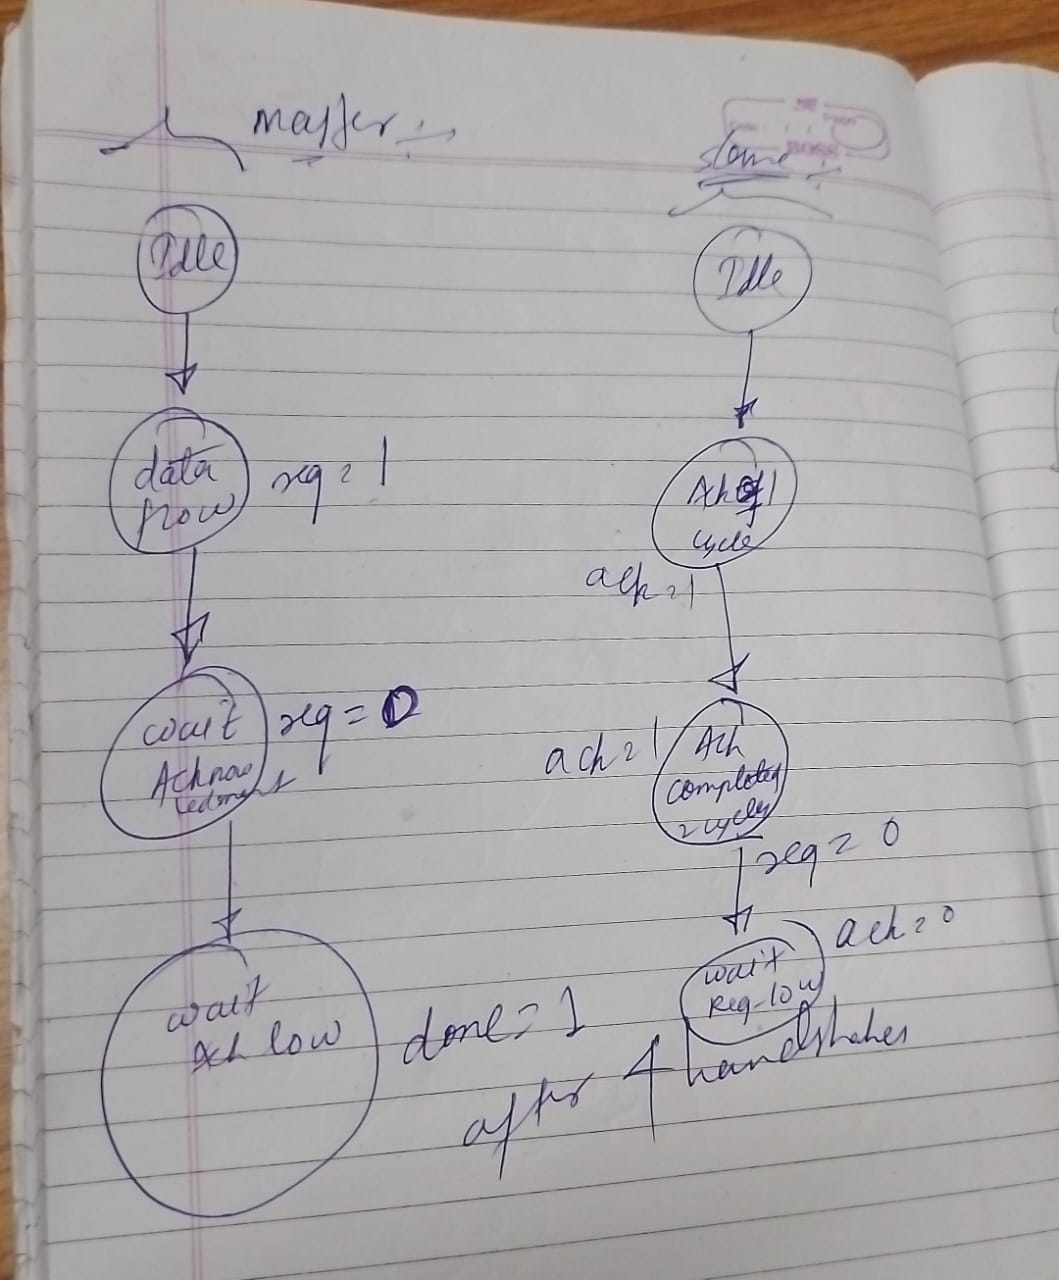 Master :-
slave :-
Idle
data
flow
req = 1
wait
Acknow
ledgment
req = 0
wait
Ach low
done = 1
after 4 handshakes
Idle
Ach of 1
cycle
ack = 1
Ach
completed
2 cycles
ach = 1
req = 0
wait
Req-low
ach = 0